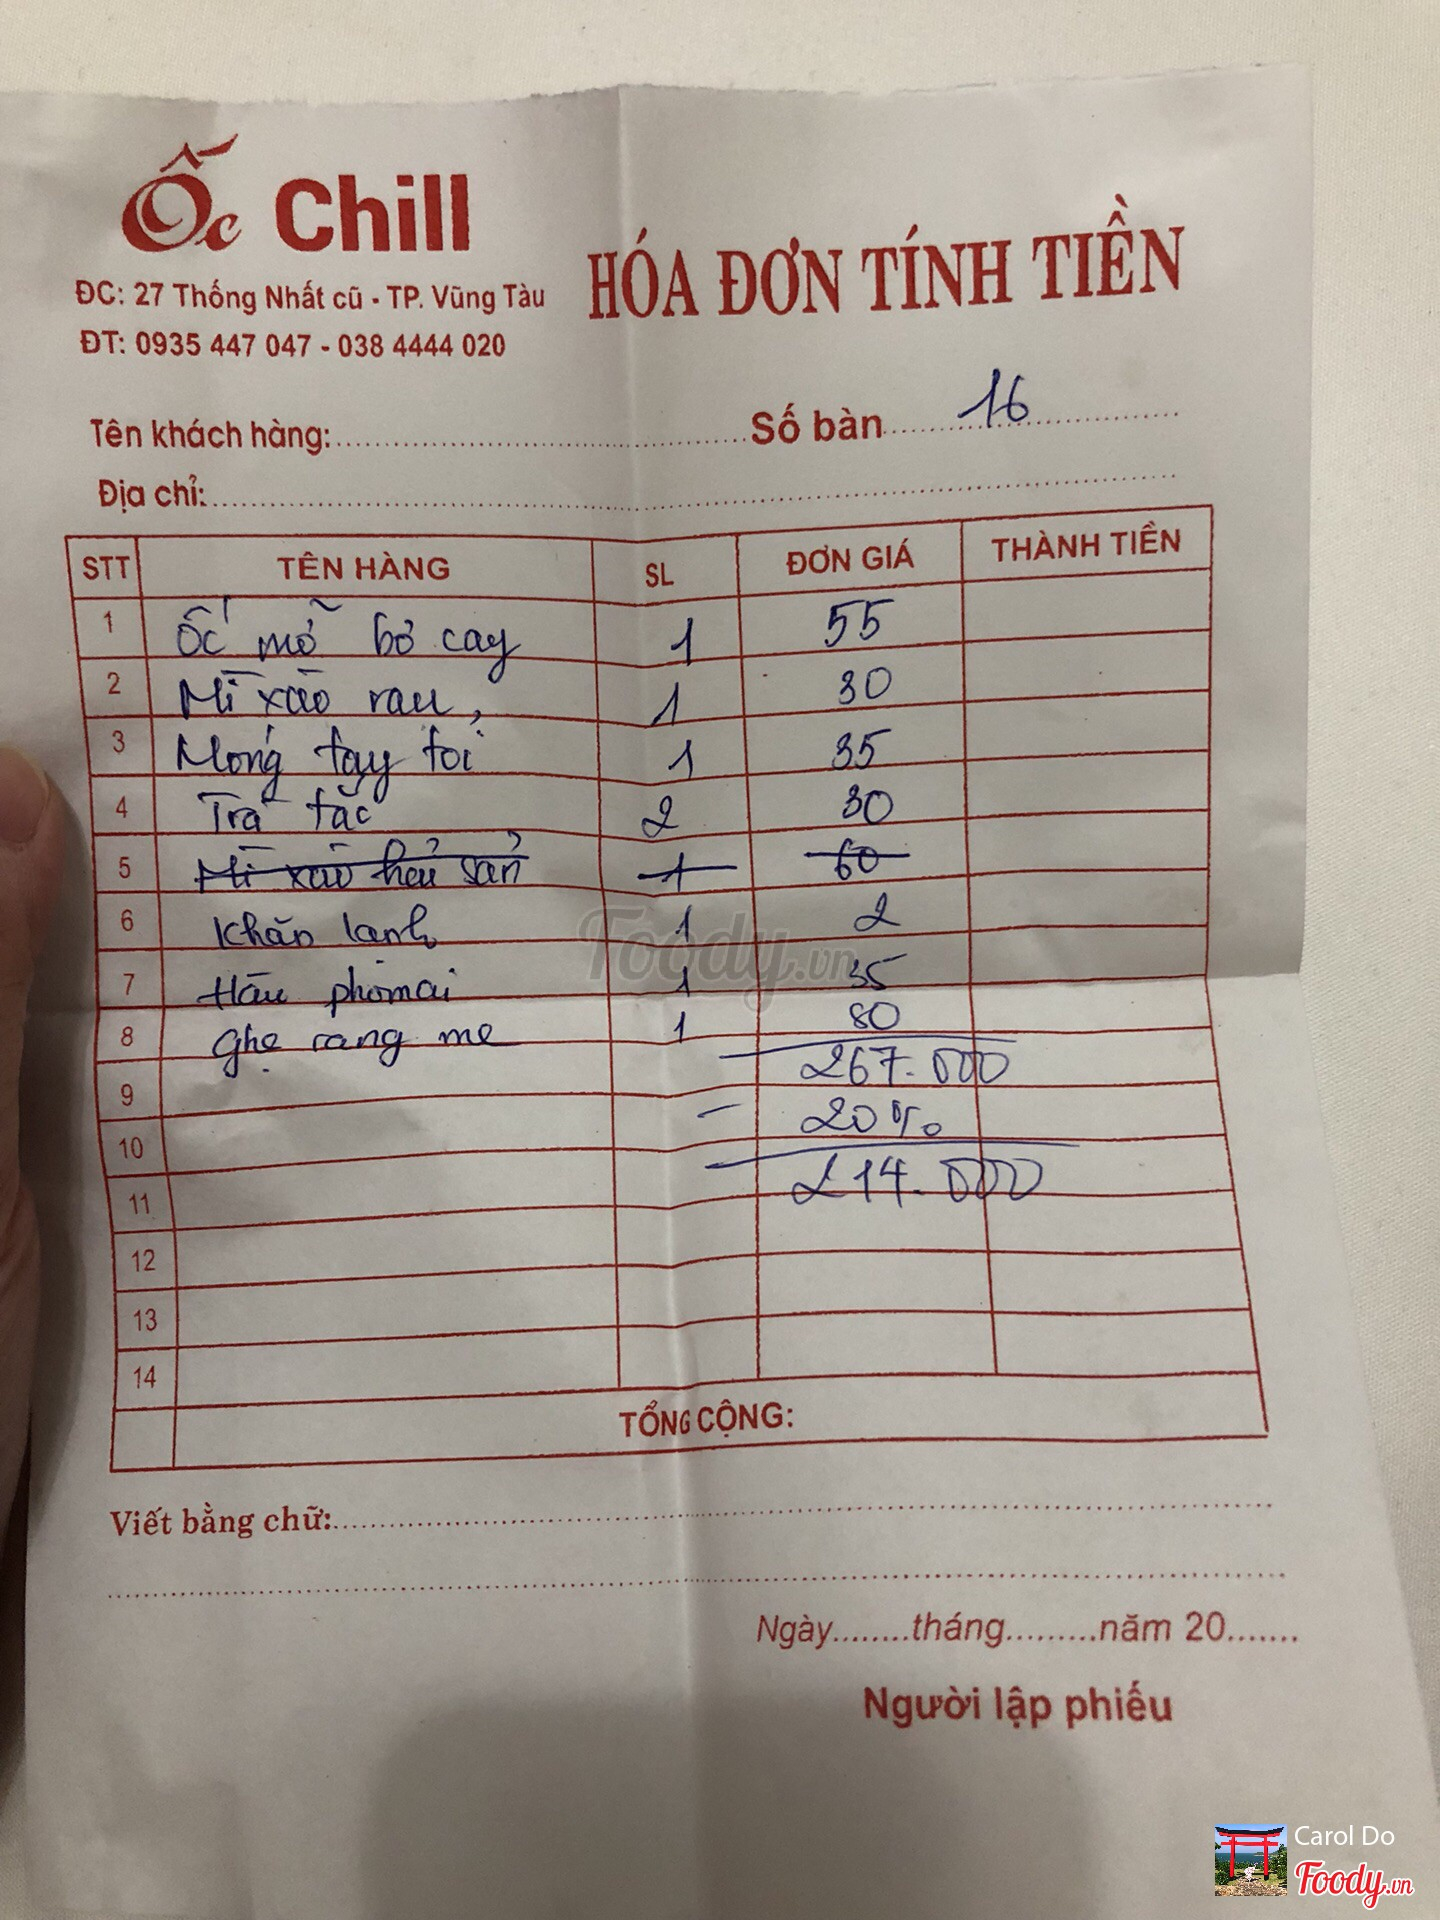 Ốc Chill
HÓA ĐƠN TÍNH TIỀN
ĐC: 27 Thống Nhất cũ - TP. Vũng Tàu
ĐT: 0935 447 047 - 038 4444 020
Tên khách hàng: Số bàn 16
Địa chỉ:
STT TÊN HÀNG SL ĐƠN GIÁ THÀNH TIỀN
1 Ốc mỡ bơ cay 1 55
2 Mì xào rau 1 30
3 Móng tay tỏi 1 35
4 Trà tắc 2 30
5 Mì xào hải sản 1 60
6 Khăn lạnh 1 2
7 Hàu phomai 1 35
8 Ghẹ rang me 1 80
267.000
9
- 20%
10
214.000
11
12
13
14
TỔNG CỘNG:
Viết bằng chữ:
Ngày........tháng.........năm 20.......
Người lập phiếu
Foody.vn
Carol Do
Foody.vn